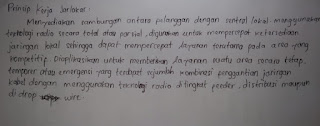 Prinsip kerja Jarlokar :
Menyediakan sambungan antara pelanggan dengan sentral lokal menggunakan
teknologi radio secara total atau parsial, digunakan untuk mempercepat ketersediaan
jaringan lokal sehingga dapat mempercepat layanan terutama pada area yang
kompetitif. Diaplikasikan untuk memberikan layanan suatu area secara tetap,
temporer atau emergensi yang terdapat sejumlah kombinasi penggantian jaringan
kabel dengan menggunakan teknologi radio ditingkat feeder, distribusi maupun
di drop wire